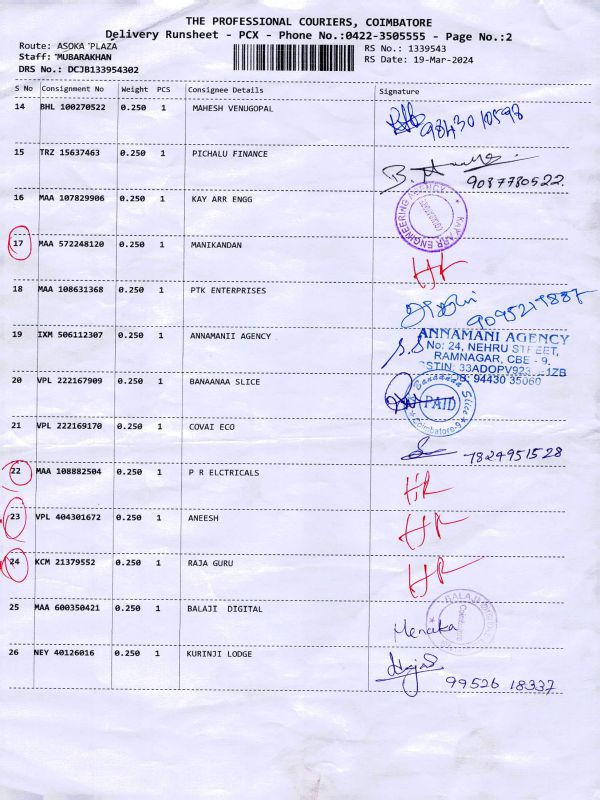 THE PROFESSIONAL COURIERS, COIMBATORE
Delivery Runsheet - PCX - Phone No.:0422-3505555 - Page No.:2
Route: ASOKA PLAZA RS No.: 1339543
Staff: MUBARAKHAN RS Date: 19-Mar-2024
DRS No.: DCJB133954302
S No Consignment No Weight PCS Consignee Details Signature
14 BHL 100270522 0.250 1 MAHESH VENUGOPAL
9843010598
15 TRZ 15637463 0.250 1 PICHALU FINANCE
9087780522.
16 MAA 107829906 0.250 1 KAY ARR ENGG
KAY ARR ENGINEERING AGENCY
17 MAA 572248120 0.250 1 MANIKANDAN
18 MAA 108631368 0.250 1 PTK ENTERPRISES
19 IXM 506112307 0.250 1 ANNAMANII AGENCY
ANNAMANI AGENCY
No: 24, NEHRU STREET,
RAMNAGAR, CBE - 9.
94430 35060
20 VPL 222167909 0.250 1 BANAANAA SLICE
Bananaa Slice
PAID
Coimbatore-9
21 VPL 222169170 0.250 1 COVAI ECO
7824951528
22 MAA 108882504 0.250 1 P R ELCTRICALS
23 VPL 404301672 0.250 1 ANEESH
24 KCM 21379552 0.250 1 RAJA GURU
25 MAA 600350421 0.250 1 BALAJI DIGITAL
BALAJI
Menaka
26 NEY 40126016 0.250 1 KURINJI LODGE
99526 18337